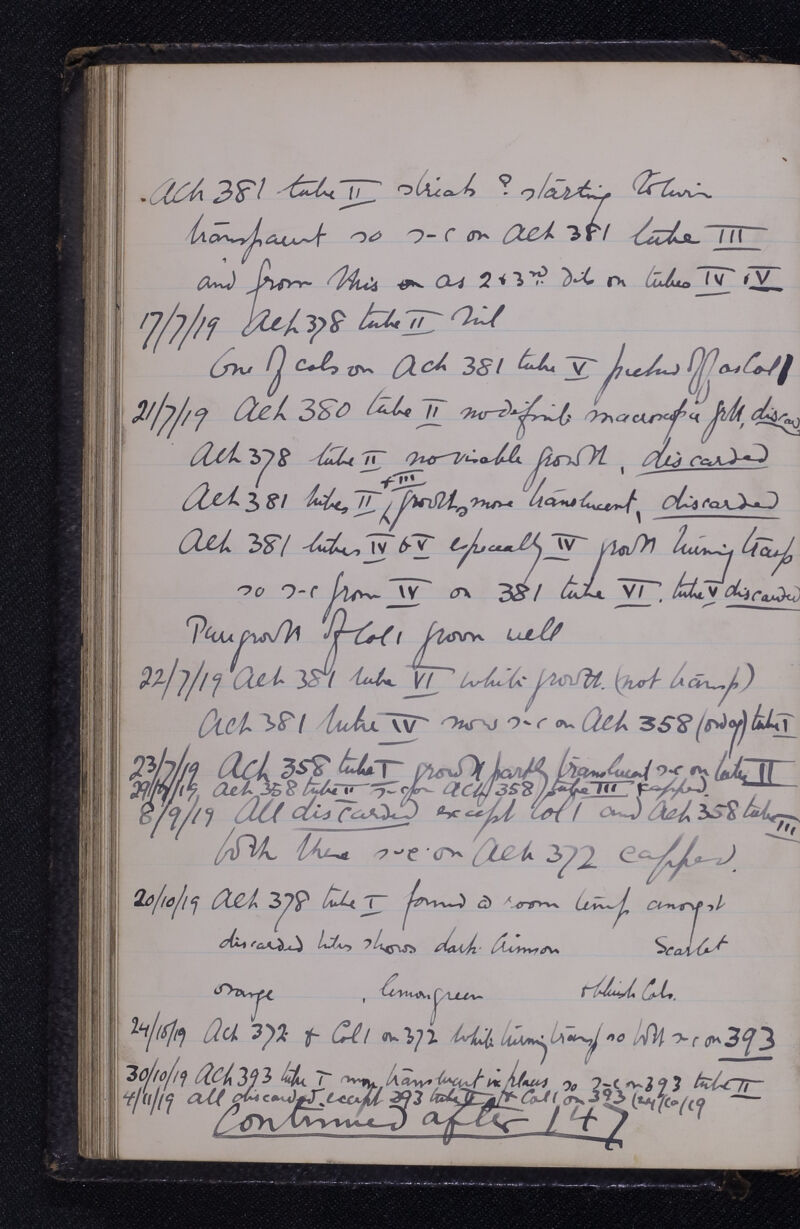 Ach 381 tube II streak ? starting to turn
transparent so s-c on Ach 381 tube III
and from this as 2 & 3rd dils on tubes IV & V
17/7/19 Ach 378 tube II Nil
One of cols on Ach 381 tube V picked off as Col 1
21/7/19 Ach 380 tube II no definite macroscopic gth, discar
Ach 378 tube II no visible growth, discarded
Ach 381 tubes II + III growths more translucent, discarded
Ach 381 tubes IV & V especially IV growth turning trasp
so s-c from IV on 381 tube VI. tube V discarded
growth of Col 1 grown well
22/7/19 Ach 381 tube VI white growth. (not transp)
Ach 381 tube IV now s-c on Ach 358 tube I
23/7/19 Ach 358 tube I growth partly translucent s-c on tube II
Ach 358 tube II s-c on Ach 358 tube III capped.
8/9/19 All discarded except Col 1 and Ach 358 tube III
both these s-c on Ach 372 capped.
20/10/19 Ach 378 tube I found @ room temp amongst
discarded tubes shows dark crimson Scarlet
orange, lemon green & bluish Cols.
24/10/19 Ach 372 & Col 1 on 372 white turning transp so both s-c on 393
30/10/19 Ach 393 tube I now translucent in places so s-c on 393 tube II
4/11/19 all discarded except 393 tube II & Col 1 on 393 (24/10/19
Continued after 147